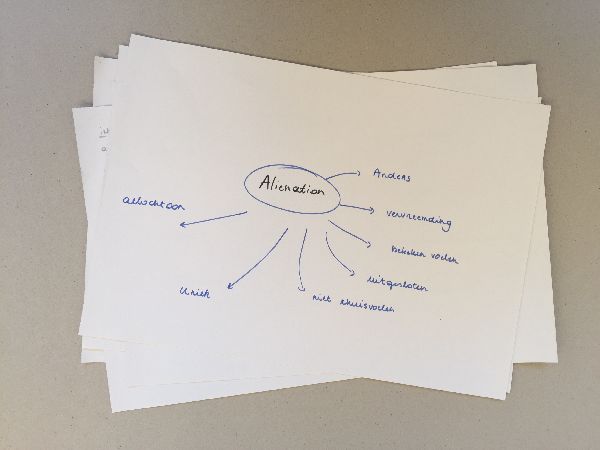 Alienation
Anders
vervreemding
bekeken voelen
uitgesloten
niet thuisvoelen
Uniek
allochtoon